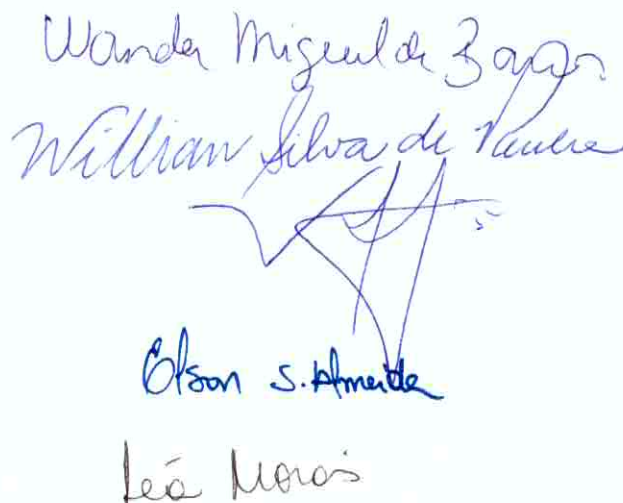 Wanda Miguel de
Willian Silva de Paula
Elson S. Almeida
Léa Morais